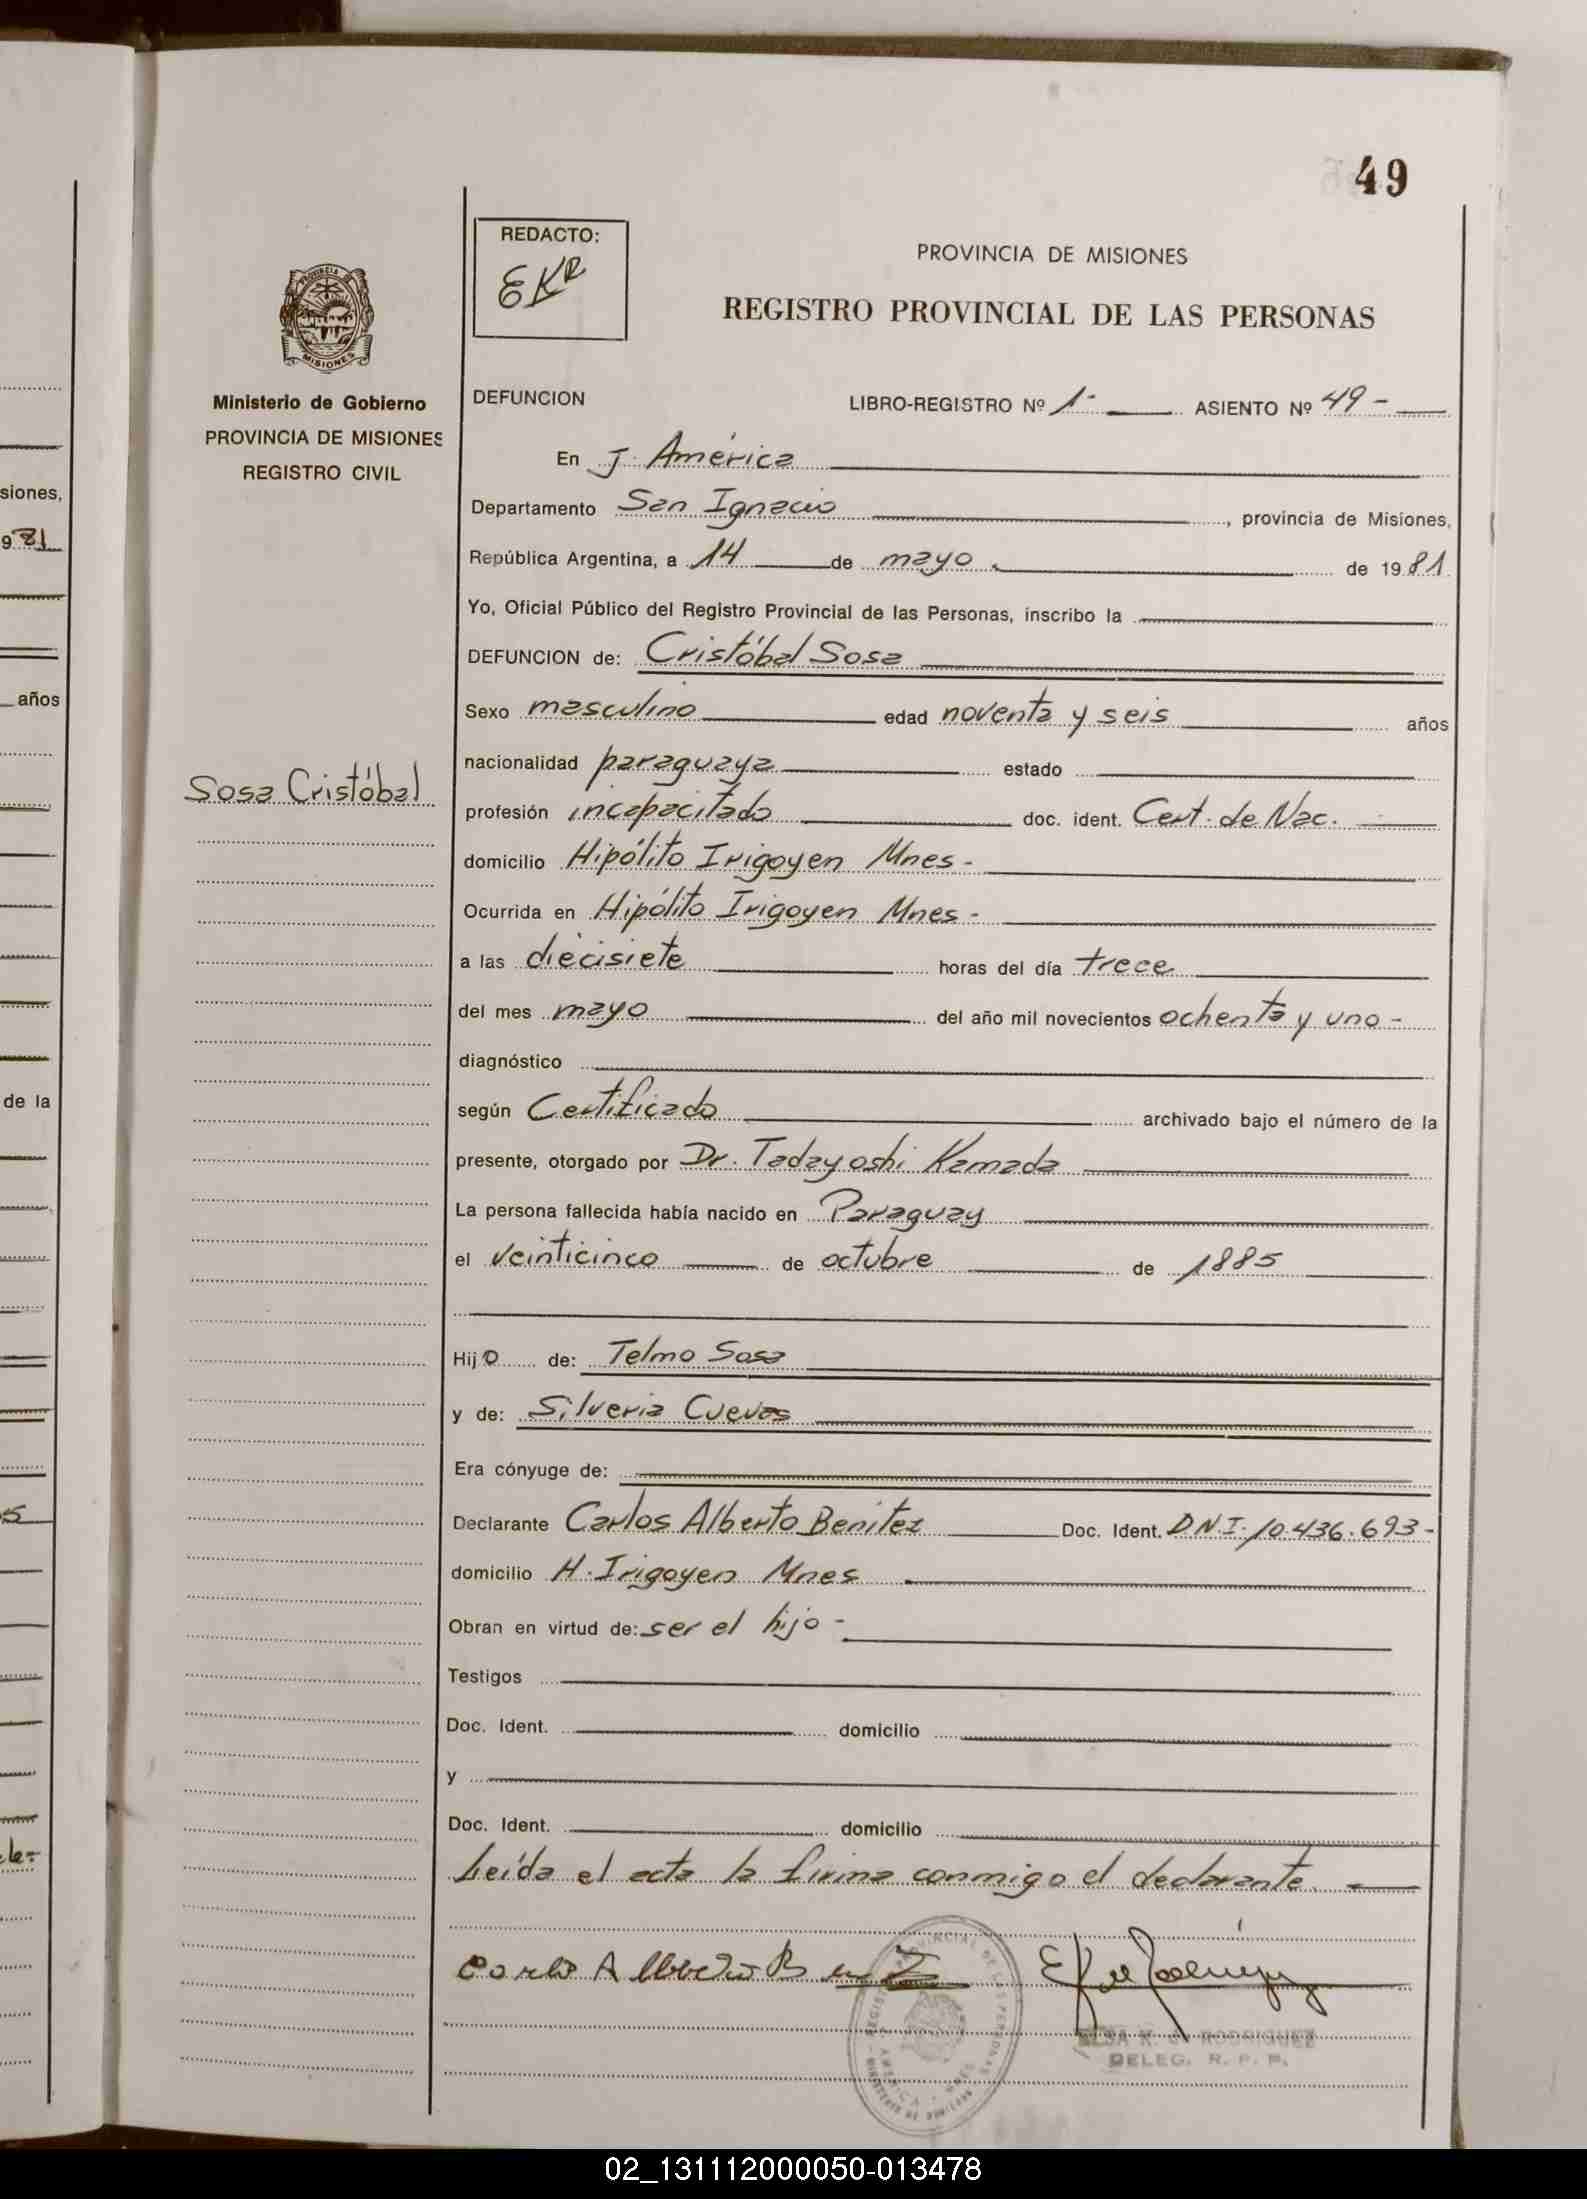 49
REDACTO:
EKR
PROVINCIA DE MISIONES
REGISTRO PROVINCIAL DE LAS PERSONAS
PROVINCIA DE
MISIONES
Ministerio de Gobierno
PROVINCIA DE MISIONES
REGISTRO CIVIL
DEFUNCION LIBRO-REGISTRO Nº 1- ASIENTO Nº 49-
En J. América
Departamento San Ignacio, provincia de Misiones,
República Argentina, a 14 de mayo de 1981
Yo, Oficial Público del Registro Provincial de las Personas, inscribo la
DEFUNCION de: Cristóbal Sosa
Sexo masculino edad noventa y seis años
nacionalidad paraguaya estado
Sosa Cristóbal
profesión incapacitado doc. ident. Cert. de Nac.
domicilio Hipólito Irigoyen Mnes-
Ocurrida en Hipólito Irigoyen Mnes-
a las diecisiete horas del día trece
del mes mayo del año mil novecientos ochenta y uno-
diagnóstico
según Certificado archivado bajo el número de la
presente, otorgado por Dr. Tadayoshi Kamada
La persona fallecida había nacido en Paraguay
el veinticinco de octubre de 1885
Hijo de: Telmo Sosa
y de: Silveria Cuevas
Era cónyuge de:
Declarante Carlos Alberto Benitez Doc. Ident. D.N.I. 10.436.693-
domicilio H. Irigoyen Mnes
Obran en virtud de: ser el hijo-
Testigos
Doc. Ident. domicilio
y
Doc. Ident. domicilio
Leída el acta la firma conmigo el declarante.
RODRIGUEZ
DELEG. R. P. P.
siones,
981
años
de la
02_131112000050-013478